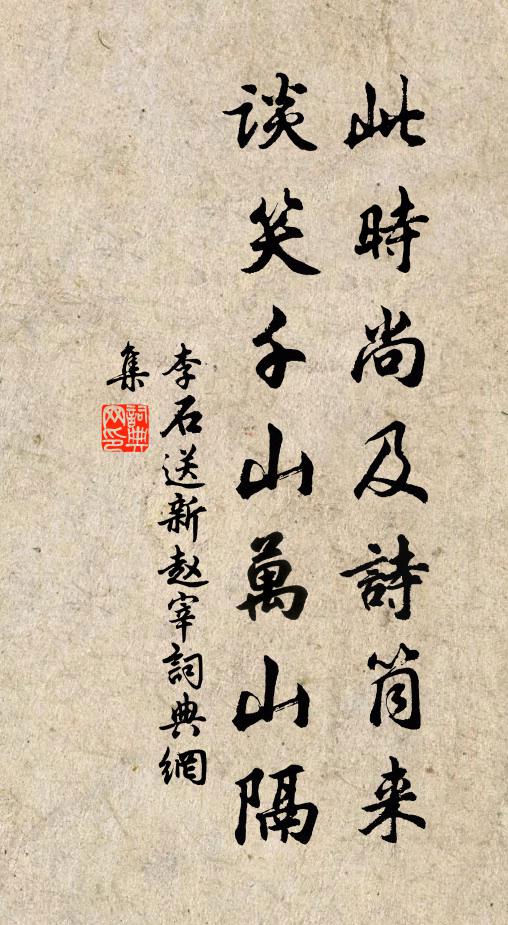 此時尚及詩筒来
谈笑千山萬山隔
李石送新赵宰詞典網
集
詞典
网印